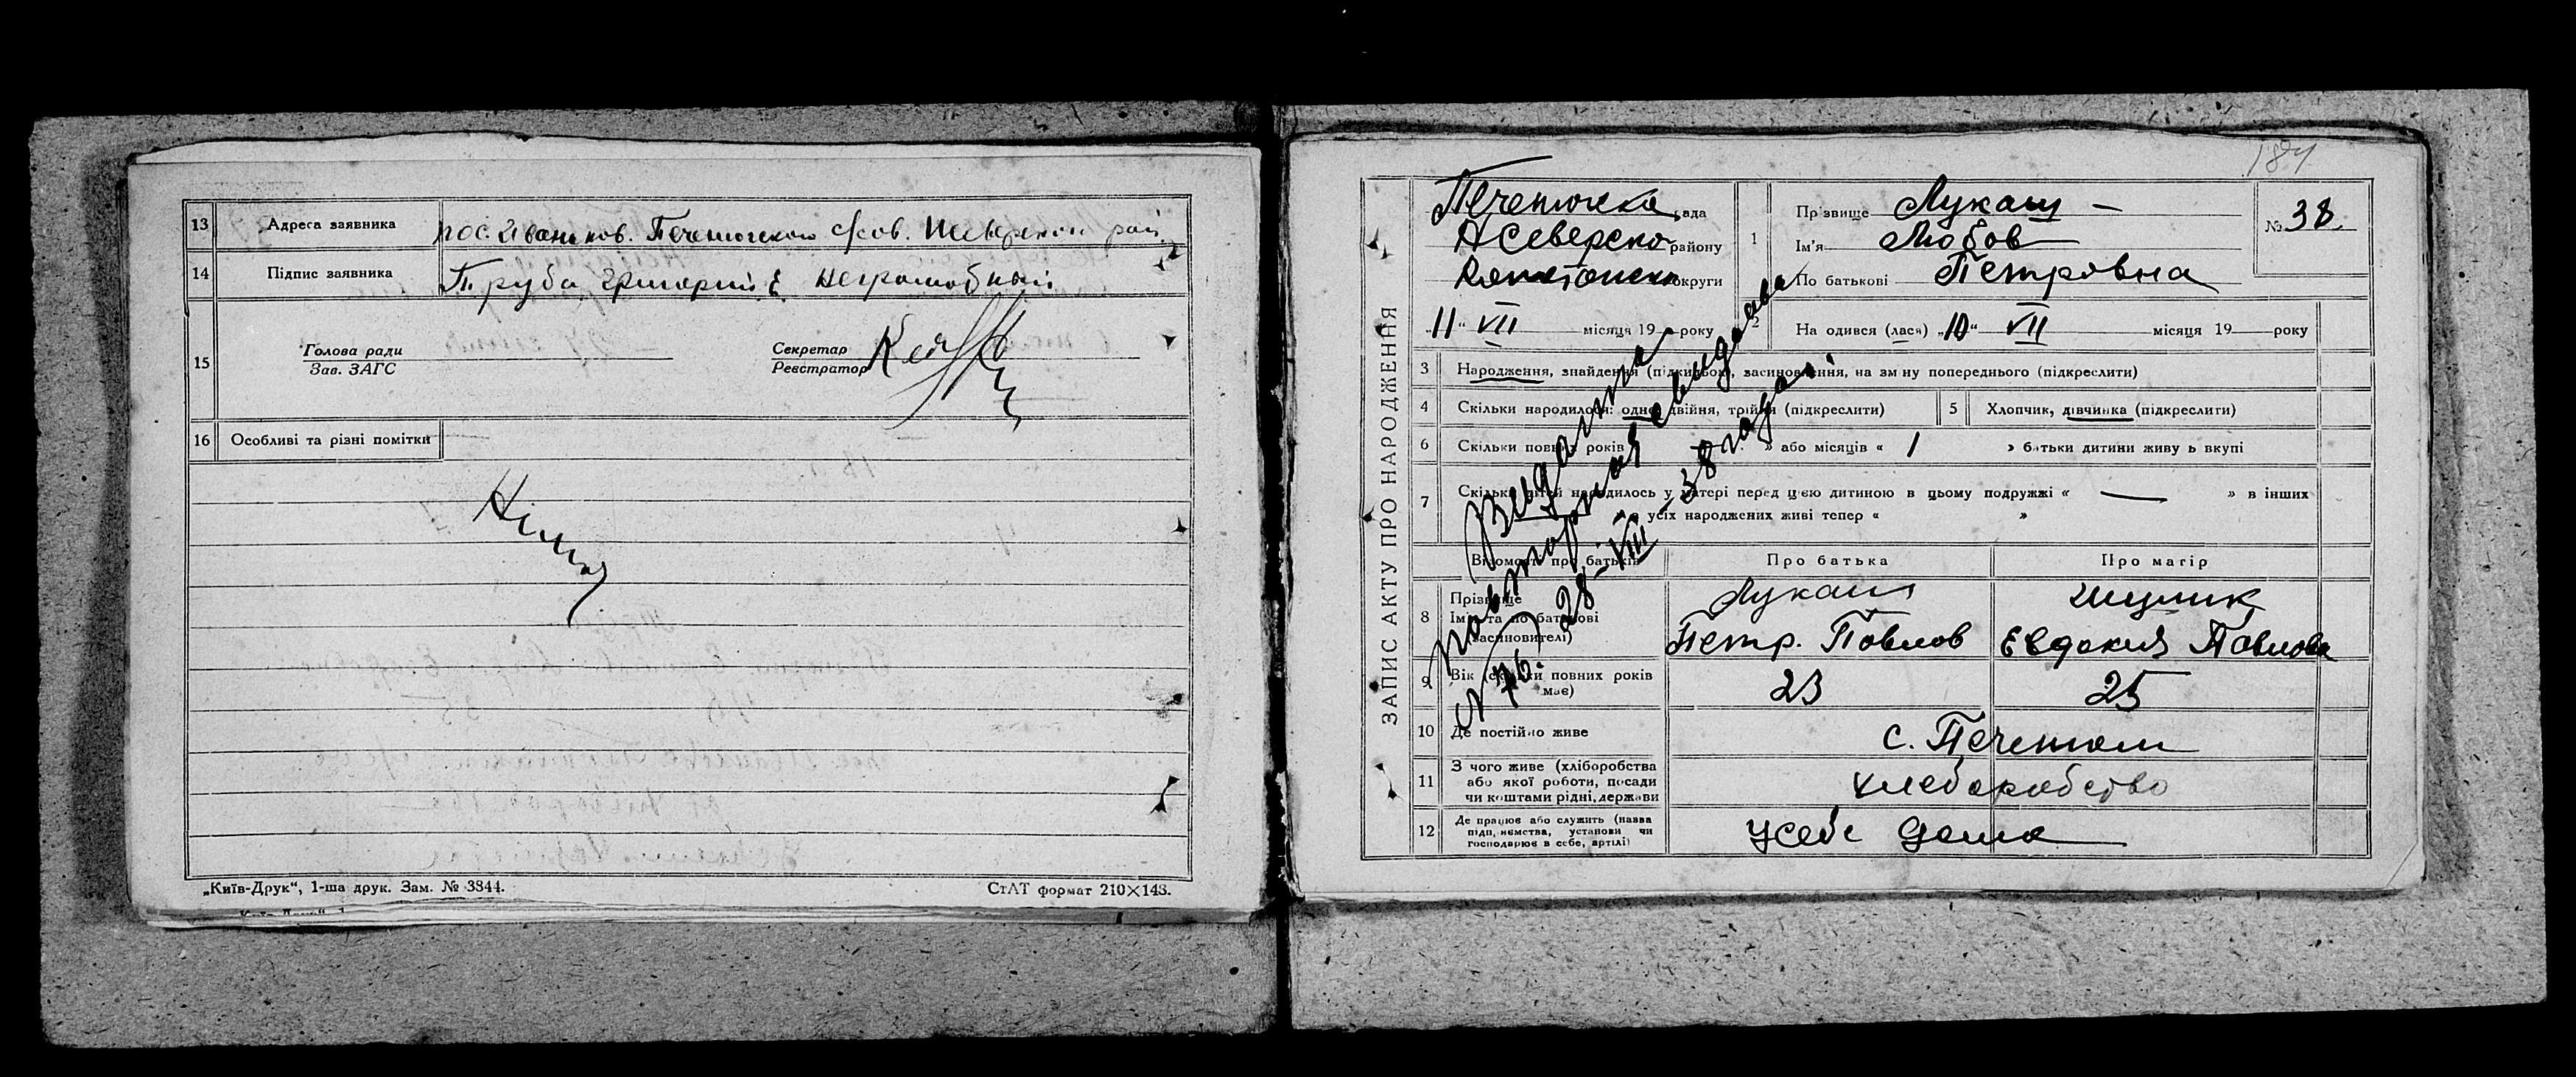 13 Адреса заявника пос. Иваньков. Печенюгского с/сов. Н Северского рай.
14 Підпис заявника Труба Григорий Е неграмотный
15 Голова ради
Зав. ЗАГС
Секретар
Реєстратор
16 Особливі та різні помітки
„Київ-Друк“, 1-ша друк. Зам. № 3844. СтАТ формат 210×148.
184
ЗАПИС АКТУ ПРО НАРОДЖЕННЯ
Печенюгска рада
Н Северско району
округи
„11“ VII місяця 19 року
1 Прізвище Лукаш
Ім'я Любов
По батькові Петровна
№ 38.
2 На одився (лася) „10“ VII місяця 19 року
3 Народження, знайдення (підкидьок), засиновлення, на зміну попереднього (підкреслити)
4 Скільки народилося: одно, двійня, трійня (підкреслити) 5 Хлопчик, дівчинка (підкреслити)
6 Скільки повних років « » або місяців « 1 » батьки дитини живуть вкупі
7 Скільки дітей народилось у матері перед цією дитиною в цьому подружжі « — » в інших
з усіх народжених живі тепер « »
Видата
повторная
28-VIII-38 года
№ 76
Відомості про батьків Про батька Про матір
8 Прізвище
Ім'я та по батькові
(засиновителі)
Лукаш
Петр. Павлов
Шулик
Евдокия Павлова
9 Вік (скільки повних років має) 23 25
10 Де постійно живе с. Печенюги
11 З чого живе (хліборобства
або якої роботи, посади
чи коштами рідні, держави
хлеборобство
12 Де працює або служить (назва
підприємства, установи чи
господарює в себе, артілі)
У себе дома